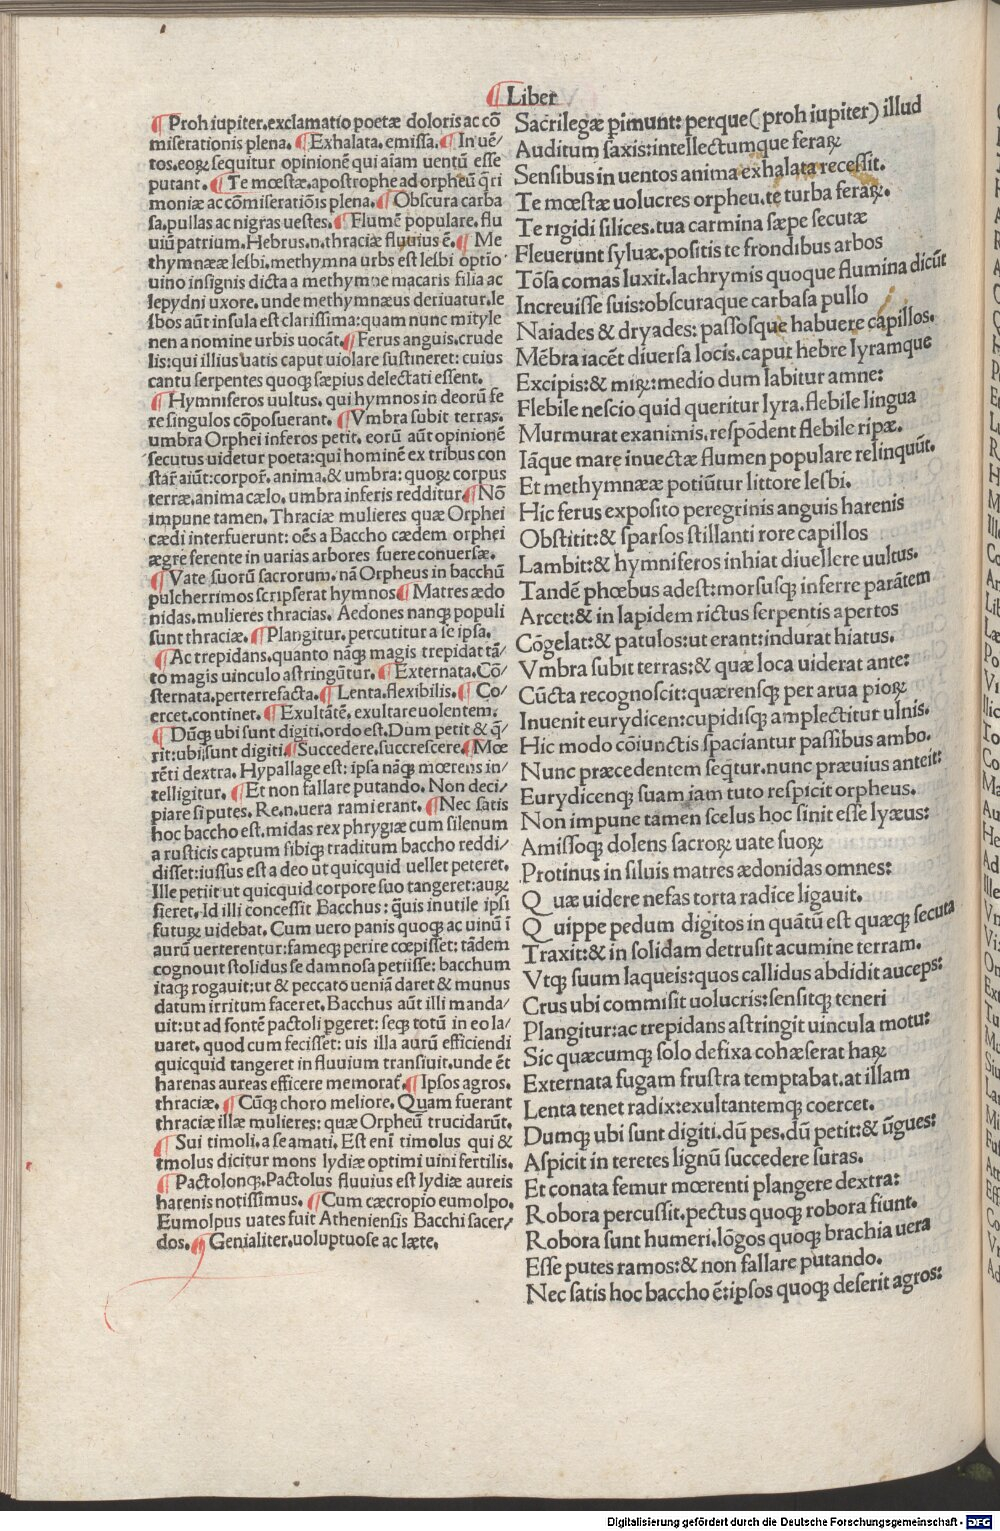 ¶Liber
¶Proh iupiter.exclamatio poetæ doloris ac cō
miserationis plena.¶Exhalata.emissa.¶In uē/
tos.eoꝝ sequitur opinionē qui aīam uentū esse
putant.¶Te mœstæ.apostrophe ad orpheū q̄ri
moniæ ac cōmiseratiōis plena.¶Obscura carba
sa.pullas ac nigras uestes.¶Flumē populare.flu
uiū patrium.Hebrus.n.thraciæ fluuius ē.¶Me
thymnææ lesbi.methymna urbs est lesbi optio
uino insignis dicta a methymne macaris filia ac
lepydni uxore.unde methymnæus deriuatur.le
sbos aūt insula est clarissima:quam nunc mityle
nen a nomine urbis uocāt.¶Ferus anguis.crude
lis:qui illius uatis caput uiolare sustineret:cuius
cantu serpentes quoqꝫ sæpius delectati essent.
¶Hymniferos uultus.qui hymnos in deorū fe
re singulos cōposuerant.¶Vmbra subit terras.
umbra Orphei inferos petit.eorū aūt opinionē
secutus uidetur poeta:qui hominē ex tribus con
star̄ aiūt:corpor̄.anima.& umbra:quoꝝ corpus
terræ.anima cælo.umbra inferis redditur.¶Nō
impune tamen.Thraciæ mulieres quæ Orphei
cædi interfuerunt:oēs a Baccho cædem orphei
ægre ferente in uarias arbores fuere conuersæ.
¶Vate suorū sacrorum.nā Orpheus in bacchū
pulcherrimos scripserat hymnos¶Matres ædo
nidas.mulieres thracias. Aedones nanqꝫ populi
sunt thraciæ.¶Plangitur.percutitur a se ipsa.
¶Ac trepidans.quanto nāqꝫ magis trepidat tā/
to magis uinculo astringūtur.¶Externata.Cō/
sternata.perterrefacta.¶Lenta.flexibilis.¶Co/
ercet.continet.¶Exultātē.exultare uolentem.
¶Dūqꝫ ubi sunt digiti.ordo est.Dum petit & q̄/
rit:ubi sunt digiti¶Succedere.succrescere.¶Mœ
rēti dextra.Hypallage est:ipsa nāqꝫ mœrens in/
telligitur.¶Et non fallare putando.Non deci/
piare si putes.Re.n.uera rami erant.¶Nec satis
hoc baccho est.midas rex phrygiæ cum silenum
a rusticis captum sibiqꝫ traditum baccho reddi/
disset:iussus est a deo ut quicquid uellet peteret.
Ille petiit ut quicquid corpore suo tangeret:auꝝ
fieret.Id illi concessit Bacchus:q̄uis inutile ipsi
futuꝝ uidebat.Cum uero panis quoqꝫ ac uinū ī
aurū uerterentur:fameqꝫ perire cœpisset:tādem
cognouit stolidus se damnosa petiisse:bacchum
itaqꝫ rogauit:ut & peccato ueniā daret & munus
datum irritum faceret.Bacchus aūt illi manda/
uit:ut ad fontē pactoli ꝑgeret:seqꝫ totū in eo la/
uaret.quod cum fecisset:uis illa aurū efficiendi
quicquid tangeret in fluuium transiuit.unde ēt
harenas aureas efficere memorat̄.¶Ipsos agros.
thraciæ.¶Cūqꝫ choro meliore.Quam fuerant
thraciæ illæ mulieres:quæ Orpheū trucidarūt.
¶Sui timoli.a se amati.Est enī timolus qui &
tmolus dicitur mons lydiæ optimi uini fertilis.
¶Pactolonqꝫ.Pactolus fluuius est lydiæ aureis
harenis notissimus.¶Cum cæcropio eumolpo.
Eumolpus uates fuit Atheniensis Bacchi sacer/
dos.¶Genialiter.uoluptuose ac læte.
Sacrilegæ pimunt:perque(proh iupiter)illud
Auditum saxis:intellectumque feraꝝ
Sensibus in uentos anima exhalata recessit.
Te mœstæ uolucres orpheu.te turba feraꝝ.
Te rigidi silices.tua carmina sæpe secutæ
Fleuerunt syluæ.positis te frondibus arbos
Tōsa comas luxit.lachrymis quoque flumina dicūt
Increuisse suis:obscuraque carbasa pullo
Naiades & dryades:passosque habuere capillos.
Mēbra iacēt diuersa locis.caput hebre lyramque
Excipis:& miꝝ:medio dum labitur amne:
Flebile nescio quid queritur lyra.flebile lingua
Murmurat exanimis.respōdent flebile ripæ.
Iāque mare inuectæ flumen populare relinquūt.
Et methymnææ potiūtur littore lesbi.
Hic ferus exposito peregrinis anguis harenis
Obstitit:& sparsos stillanti rore capillos
Lambit:& hymniferos inhiat diuellere uultus.
Tandē phœbus adest:morsusqꝫ inferre parātem
Arcet:& in lapidem rictus serpentis apertos
Cōgelat:& patulos:ut erant:indurat hiatus.
Vmbra subit terras:& quæ loca uiderat ante:
Cūcta recognoscit:quærensqꝫ per arua pioꝝ
Inuenit eurydicen:cupidisqꝫ amplectitur ulnis.
Hic modo cōiunctis spaciantur passibus ambo.
Nunc præcedentem seqtur.nunc præuius anteit:
Eurydicenqꝫ suam iam tuto respicit orpheus.
Non impune tamen scelus hoc sinit esse lyæus:
Amissoqꝫ dolens sacroꝝ uate suoꝝ
Protinus in siluis matres ædonidas omnes:
Quæ uidere nefas torta radice ligauit.
Quippe pedum digitos in quātū est quæqꝫ secuta
Traxit:& in solidam detrusit acumine terram.
Vtqꝫ suum laqueis:quos callidus abdidit auceps:
Crus ubi commisit uolucris:sensitqꝫ teneri
Plangitur:ac trepidans astringit uincula motu:
Sic quæcumqꝫ solo defixa cohæserat haꝝ
Externata fugam frustra temptabat.at illam
Lenta tenet radix:exultantemqꝫ coercet.
Dumqꝫ ubi sunt digiti.dū pes.dū petit:& ūgues:
Aspicit in teretes lignū succedere suras.
Et conata femur mœrenti plangere dextra:
Robora percussit.pectus quoqꝫ robora fiunt.
Robora sunt humeri.lōgos quoqꝫ brachia uera
Esse putes ramos:& non fallare putando.
Nec satis hoc baccho ē:ipsos quoqꝫ deserit agros:
Digitalisierung gefördert durch die Deutsche Forschungsgemeinschaft - DFG